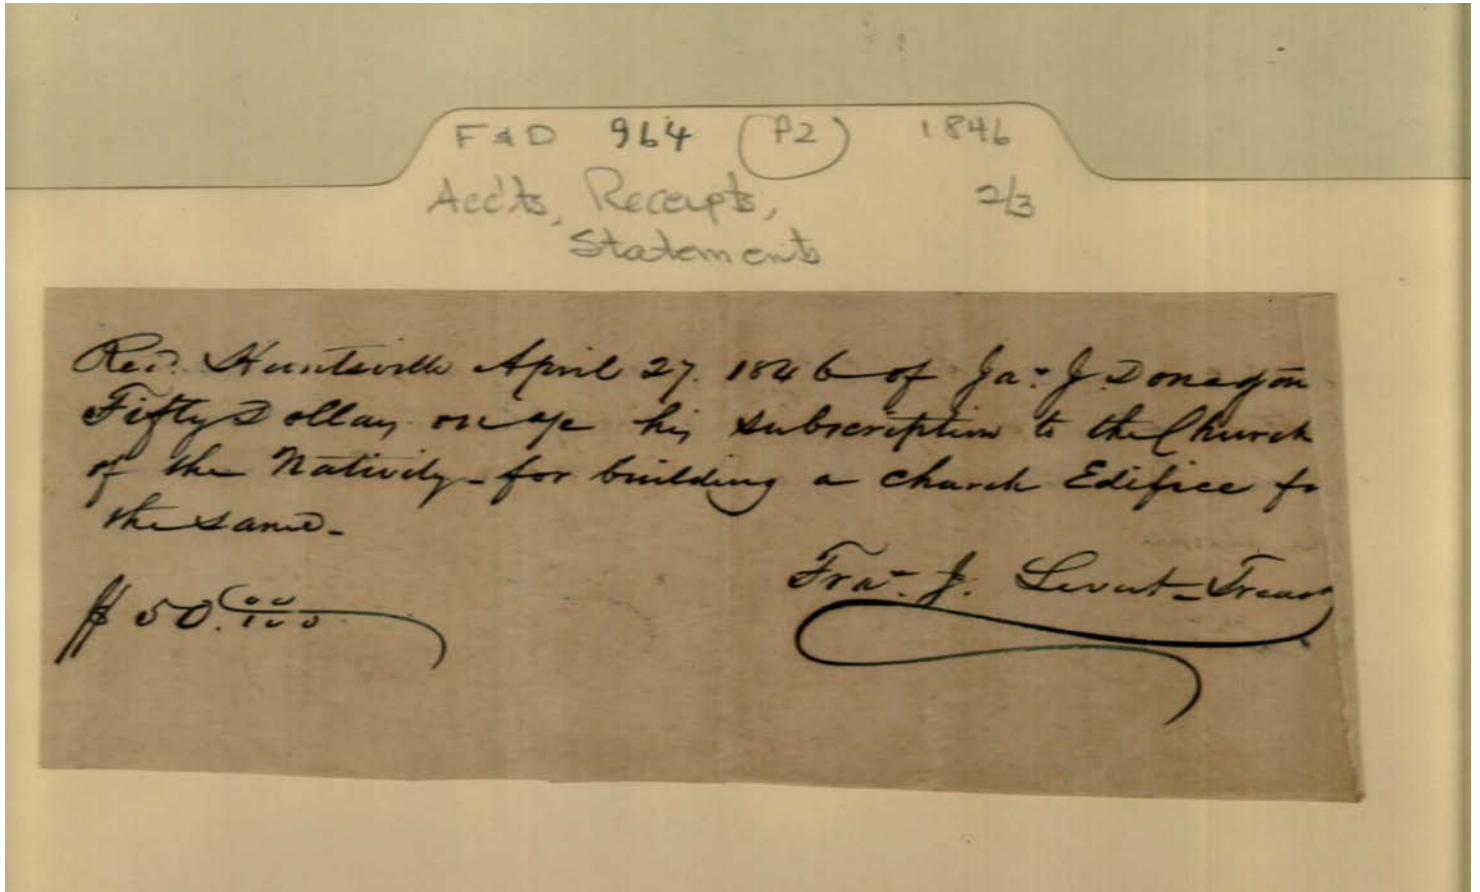 F & D 964 (P2) 1846
Acc'ts, Receipts, 2/3
Statements
Rec.d Huntsville April 27. 1846 of Jas. J. Donegan
Fifty Dollars on a/c his subscription to the Church
of the Nativity - for building a church Edifice for
the same -
$ 50.00/100
Fra.s J. Levert - Treasr